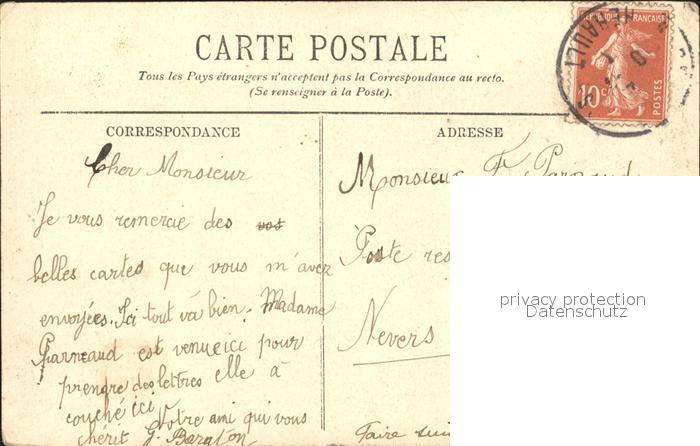 CARTE POSTALE
Tous les Pays étrangers n'acceptent pas la Correspondance au recto.
(Se renseigner à la Poste).
REPUBLIQUE FRANÇAISE
HERAULT
10c
POSTES
CORRESPONDANCE
Cher Monsieur
Je vous remercie des vos
belles cartes que vous m'avez
envoyées. Ici tout va bien. Madame
Parneaud est venue ici pour
prendre des lettres elle à
couché ici Votre ami qui vous
chérit G. Baraton
ADRESSE
Monsieur F. Parneaud
Poste res
Nevers
Faire sui
privacy protection
Datenschutz